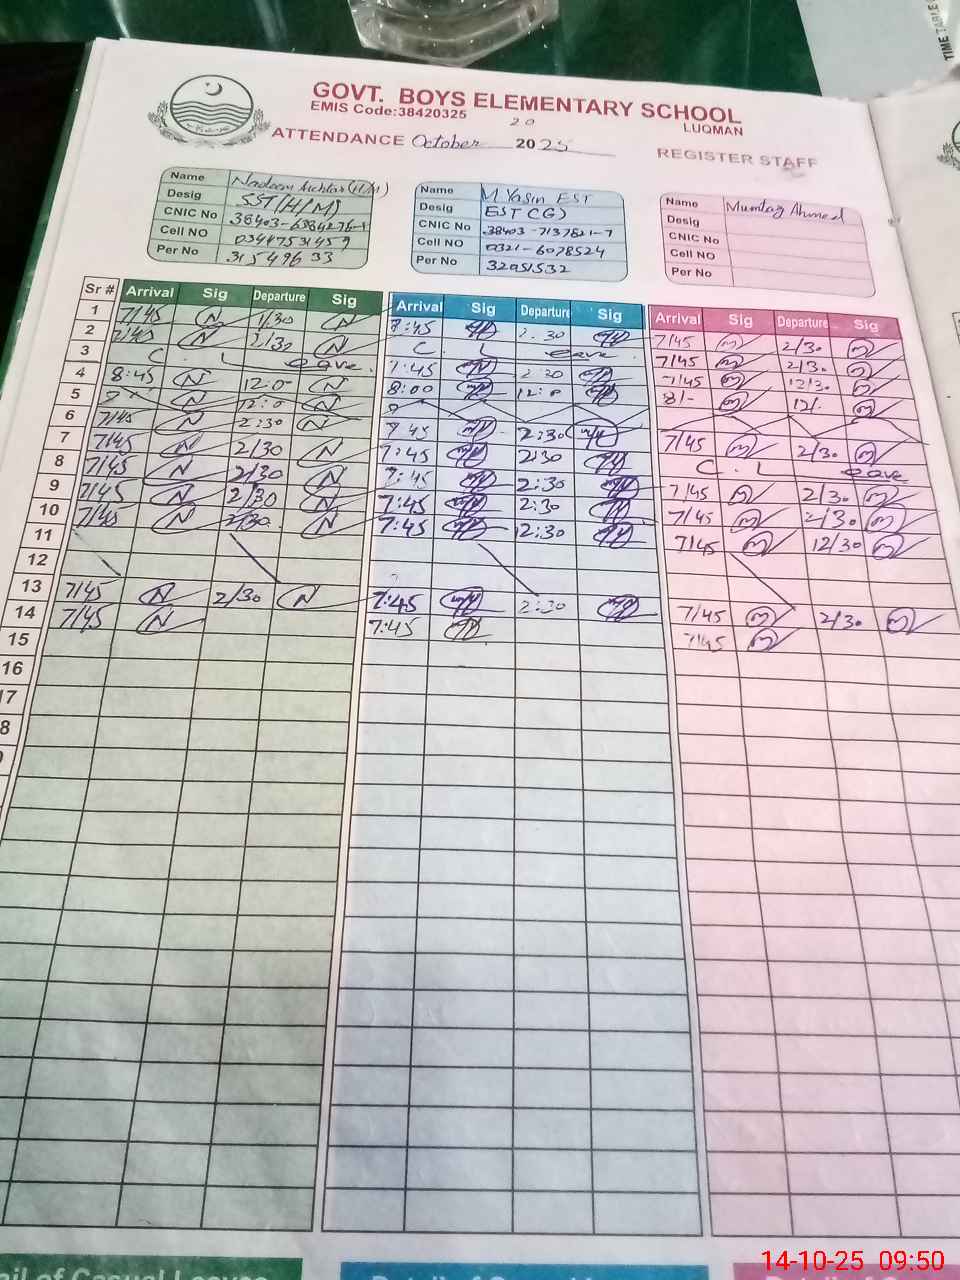 TIME TABLE
GOVT. BOYS ELEMENTARY SCHOOL
EMIS Code:38420325
LUQMAN
20
ATTENDANCE October 2025
REGISTER STAFF
Name Nadeem Akhtar (H/M)
Desig SST(H/M)
CNIC No
Cell NO 03447531459
Per No 31549633
Name M Yasin EST
Desig EST (G)
CNIC No 38403-7137821-7
Cell NO 0321-6078524
Per No 32051532
Name Mumtaz Ahmed
Desig
CNIC No
Cell NO
Per No
Sr # Arrival Sig Departure Sig Arrival Sig Departure Sig Arrival Sig Departure Sig
1 7/45 N 1/30 N 7:45 2:30 7/45 2/30
2 7/45 N 2/30 N C. Leave 7/45 2/30
3 C. Leave 7:45 2:30 7/45 12/30
4 8:45 N 12:00 N 8:00 12:0 8/- 12/.
5 N 12:0 N
6 7/45 N 2:30 N 7:45 2:30 7/45 2/30
7 7/45 N 2/30 N 7:45 2:30 C. Leave
8 7/45 N 2/30 N 7:45 2:30 7/45 2/30
9 7/45 N 2/30 N 7:45 2:30 7/45 2/30
10 7/45 N 2/30 N 7:45 12:30 7/45 12/30
11
12
13 7/45 N 2/30 N 7:45 2:30 7/45 2/30
14 7/45 N 7:45 7/45
15
16
17
8
14-10-25 09:50